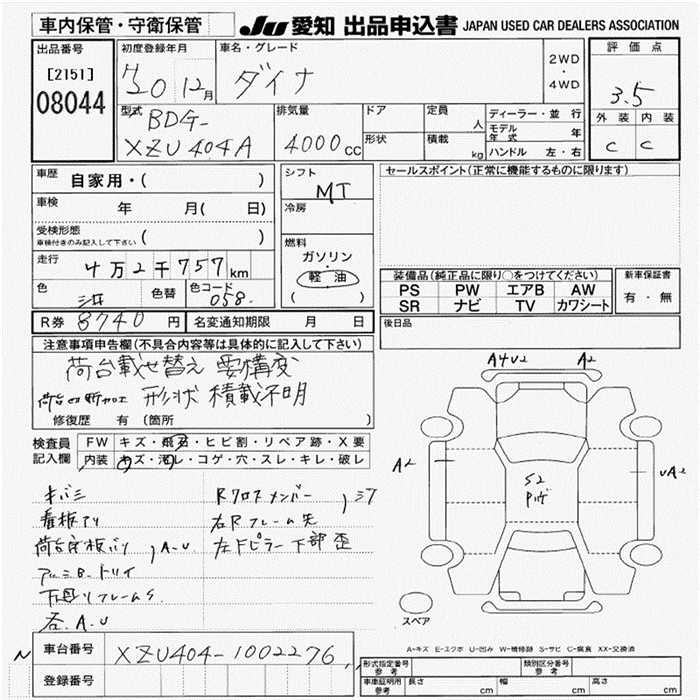 車内保管・守衛保管
JU 愛知 出品申込書 JAPAN USED CAR DEALERS ASSOCIATION
出品番号
[2151]
08044
初度登録年月
H20 12月
車名・グレード
ダイナ
2WD
・
4WD
評価点
3.5
外装 内装
C C
型式
BDG-
XZU404A
排気量
4000cc
ドア
形状
定員
人
積載
kg
ディーラー・並行
モデル年式 年
ハンドル 左・右
車歴
自家用・( )
車検
年 月( 日)
受検形態
車検付きのみ記入して下さい ( )
走行
4万2千757km
色
色替
色コード
058
シフト
MT
冷房
燃料
ガソリン
軽油
( )
セールスポイント(正常に機能するものに限ります)
装備品(純正品に限り○をつけてください)
PS PW エアB AW
SR ナビ TV カワシート
新車保証書
有・無
R券 8740円
名変通知期限 月 日
後日品
注意事項申告欄(不具合内容等は具体的に記入して下さい)
荷台載せ替え 要構変
荷台切断加工 形状 積載不明
修復歴 有 (箇所 )
検査員
記入欄
FW キズ・飛石・ヒビ割・リペア跡・X要
内装 キズ・汚レ・コゲ・穴・スレ・キレ・破レ
キバミ
看板アリ
荷台床板バリ , A-U
アルミB.トリイ
下回リフレームS
右A.U
Rクロスメンバー
右Rフレーム先
左Fピラー下部歪
A4V2 A2
A2
S2
UA2
スペア
A-キズ E-エクボ U-凹み W-補修跡 S-サビ C-腐食 XX-交換済
車台番号 XZU404-1002276
登録番号
型式指定番号
参考
類別区分番号
参考
車庫証明用
参考
長さ cm 幅 cm 高さ cm